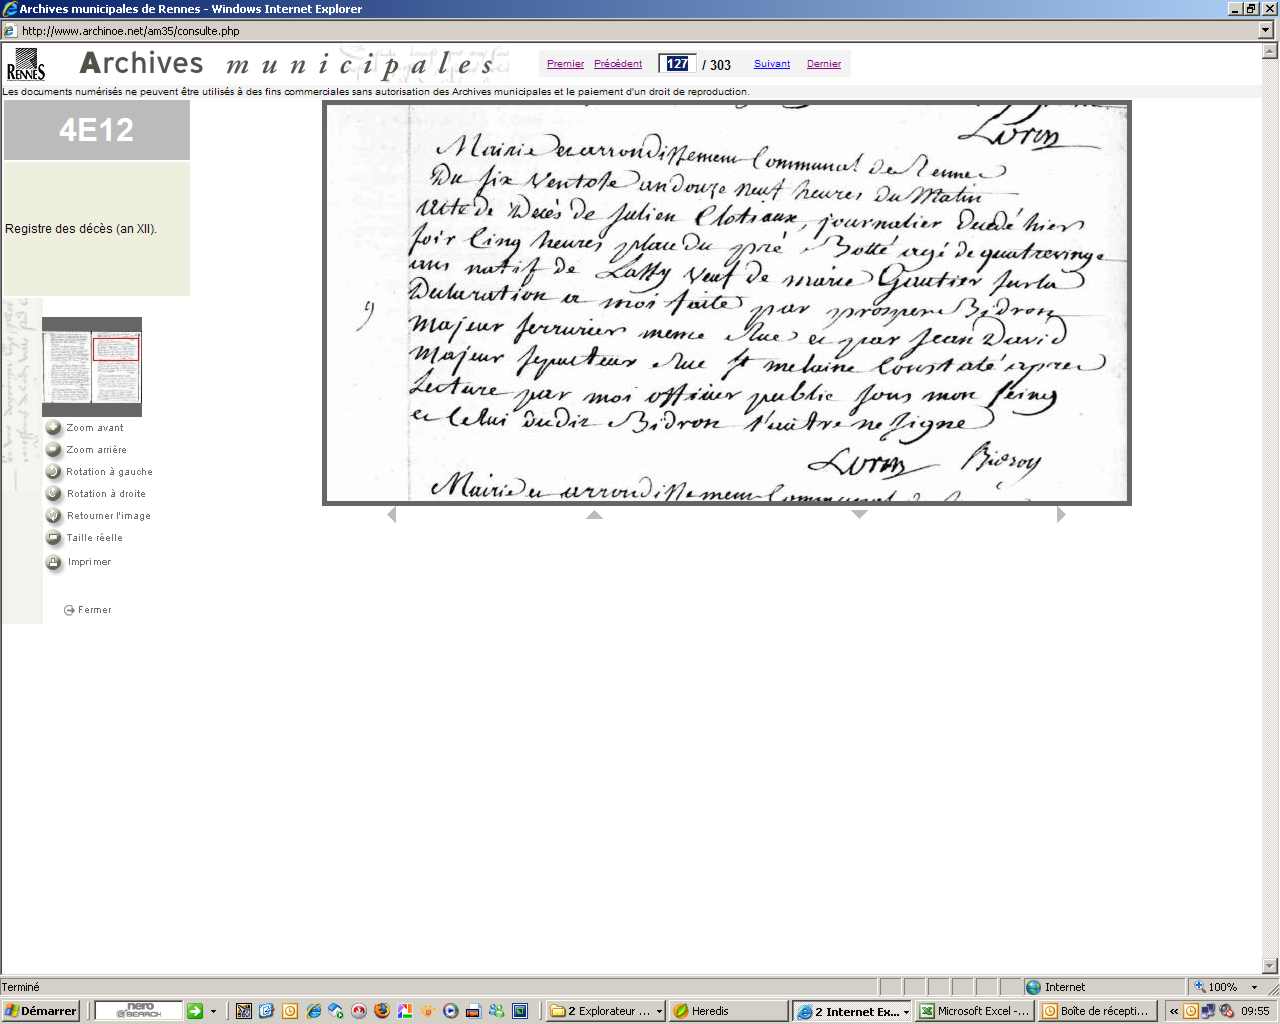 Archives municipales de Rennes - Windows Internet Explorer
http://www.archinoe.net/am35/consulte.php
RENNES
Archives municipales
Premier Précédent 127 / 303 Suivant Dernier
Les documents numérisés ne peuvent être utilisés à des fins commerciales sans autorisation des Archives municipales et le paiement d'un droit de reproduction.
4E12
Registre des décès (an XII).
Zoom avant
Zoom arrière
Rotation à gauche
Rotation à droite
Retourner l'image
Taille réelle
Imprimer
Fermer
Loron
Mairie et arrondissement Communal de Rennes
Du six Ventose an douze neuf heures du Matin
Acte de Decès de Julien Clotiaux, journalier decedé hier
soir Cinq heures place du pré Botté agé de quatrevingt
ans natif de Lassy Veuf de marie Gautier sur la
Declaration a moi faite par prospere Bidron
Majeur serrurier meme Rue et par Jean David
Majeur Rue St melaine Constaté apres
Lecture par moi officier public sous mon seing
et Celui dudit Bidron l'autre ne signe
Loron Bidron
Mairie et arrondissement Communal de
Terminé
Internet
100%
Démarrer
nero
SEARCH
2 Explorateur ...
Heredis
2 Internet Ex...
Microsoft Excel -...
Boîte de récepti...
09:55